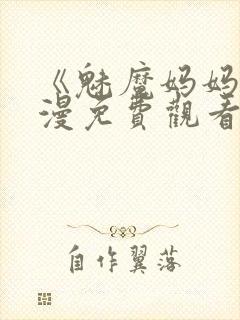 《魅魔妈妈
漫免費觀看
自作翼落